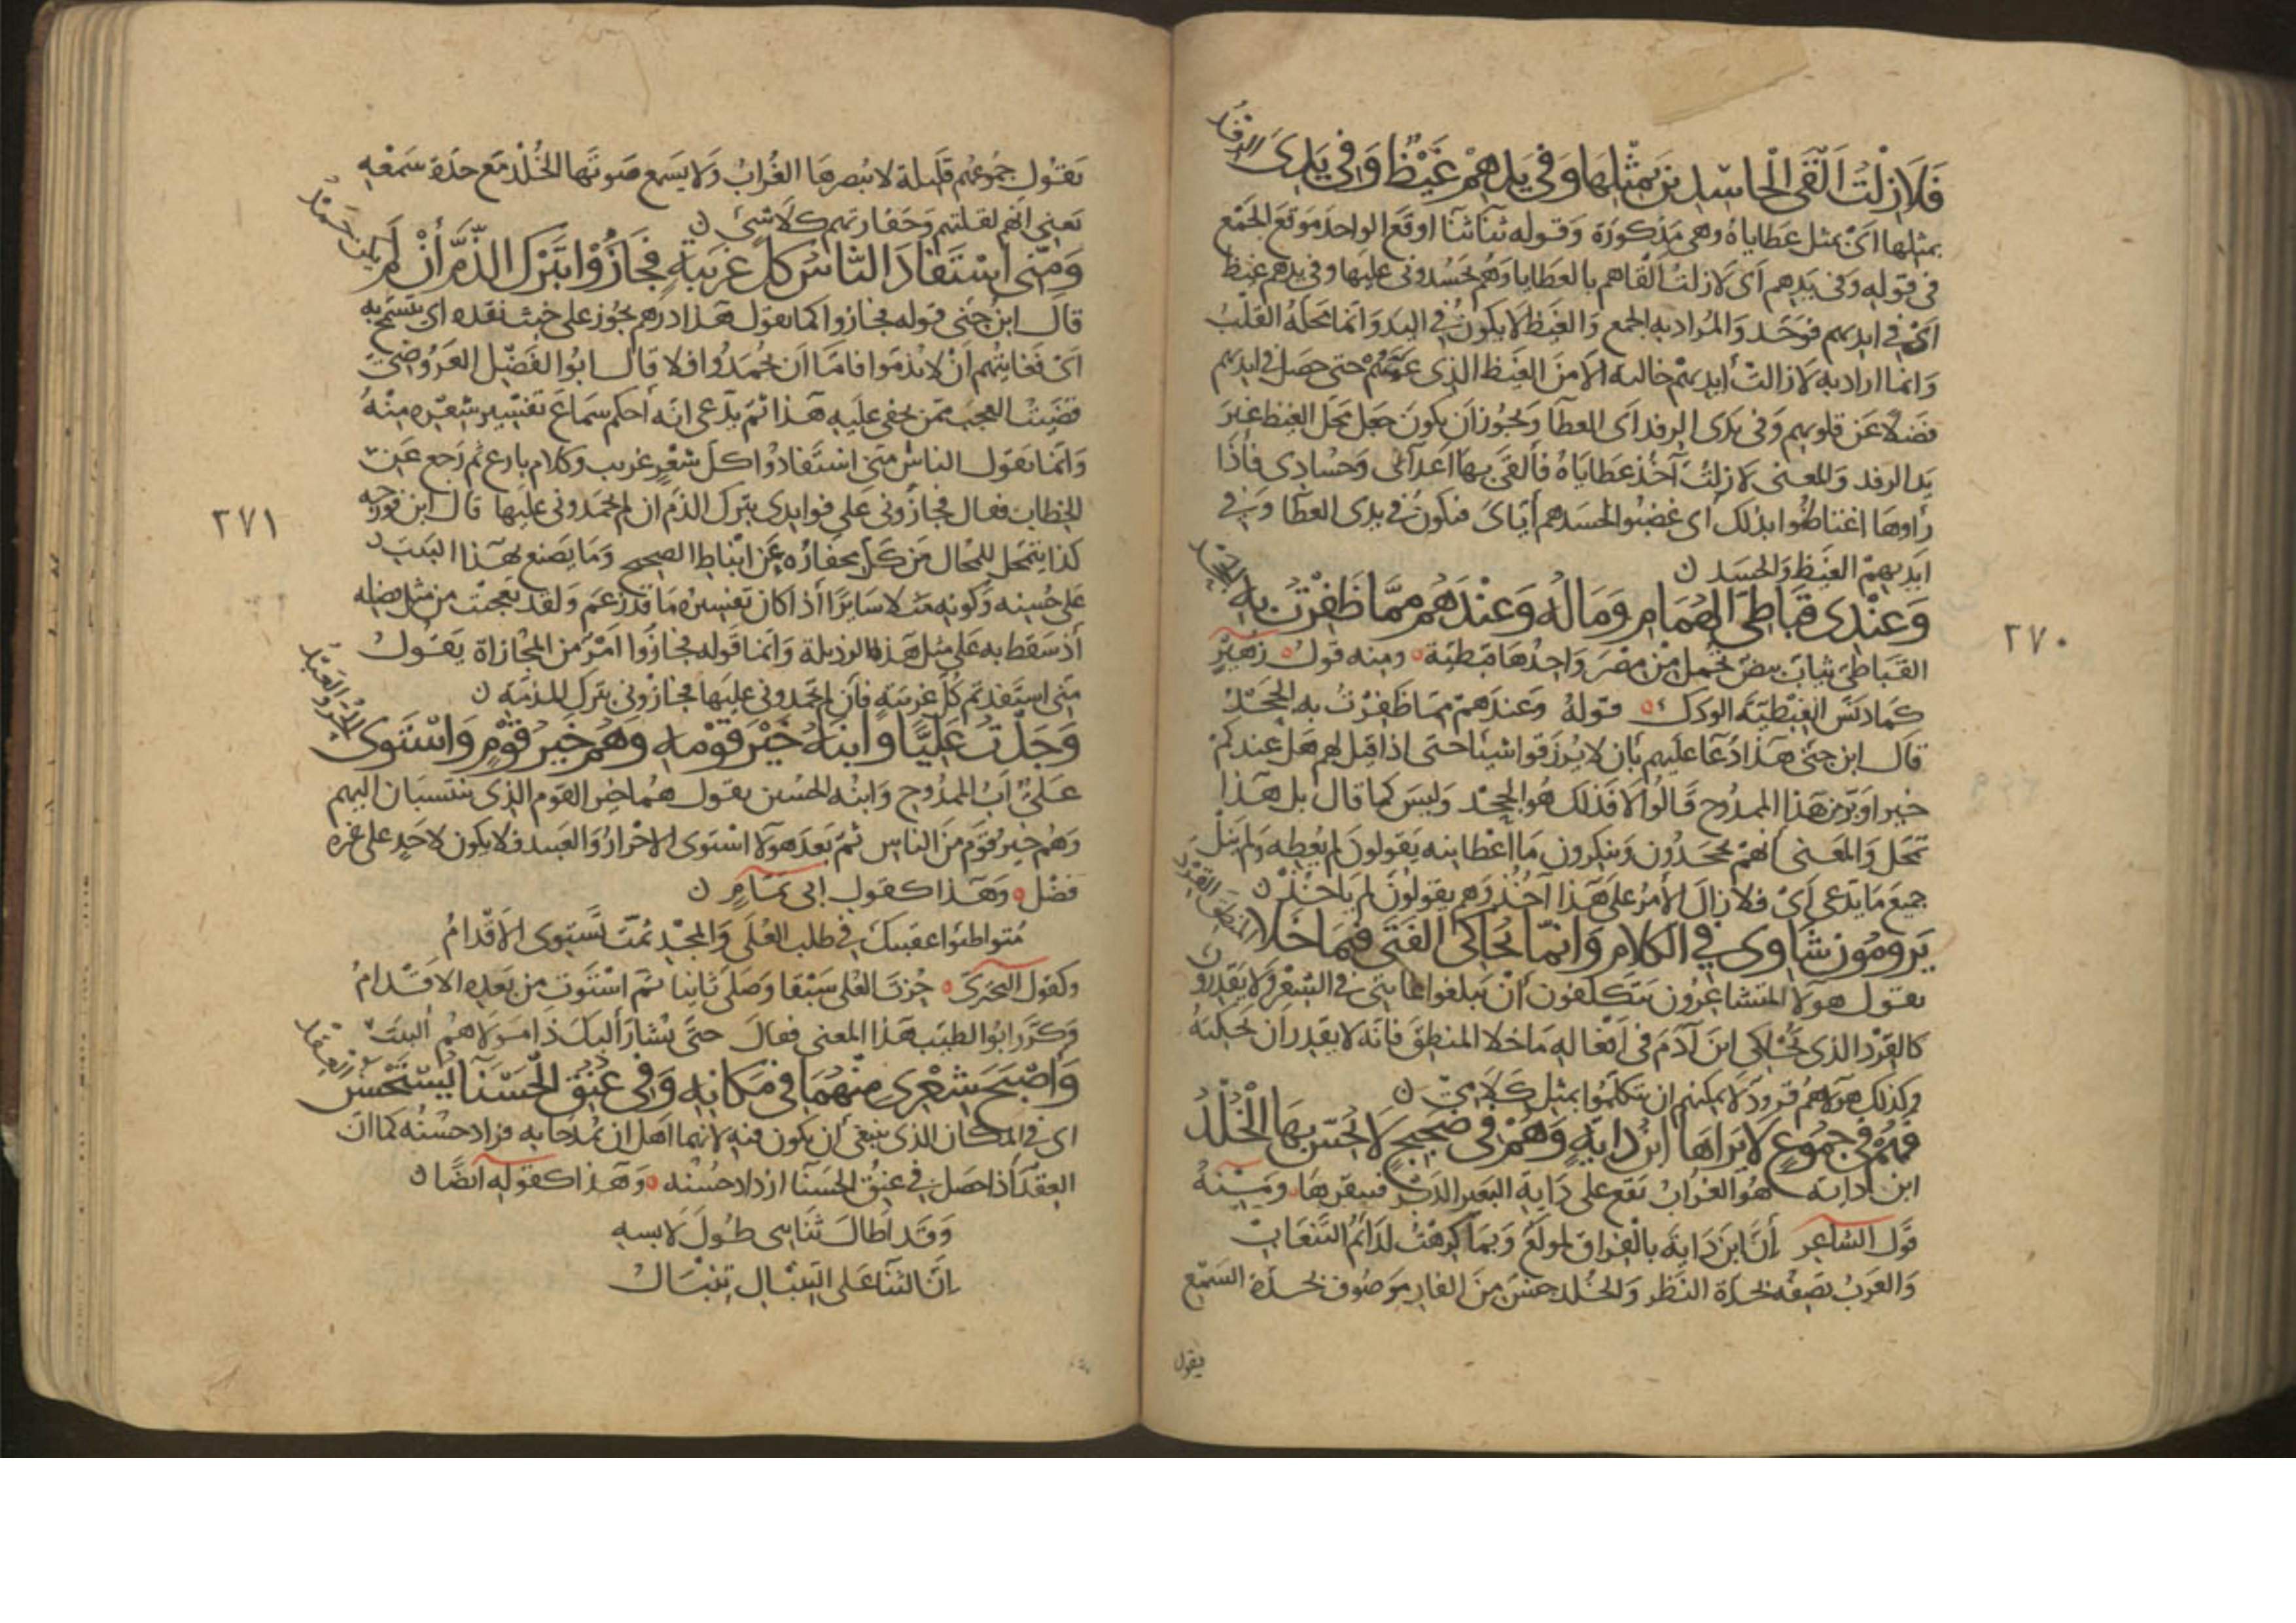 فَلَا زِلْتُ أَلْقَى الْحَاسِدِينَ بِمِثْلِهَا وَفِي يَدِهِمْ غَيْظٌ وَفِي يَدِيَ الرِّفْدُ
بمثلها اى بمثل عطاياه وهى مذكورة وقوله ثناثنا اوقع الواحد موقع الجمع
فى قوله وفى يدهم اى لازلت القاهم بالعطايا وهم يحسدونى عليها وفى يدهم غيظ
اى فى ايديهم فوحد والمراد به الجمع والغيظ لا يكون فى اليد وانما محله القلب
وانما اراد به لا زالت ايديهم خالية الا من الغيظ الذى عمهم حتى حصل فى ايديهم
فضلا عن قلوبهم وفى يدى الرفد اى العطآ ويجوز ان يكون جعل محل الغيظ غير
يد الرفد والمعنى لازلت آخذ عطاياه فألقى بها اعدآئى وحسادى فاذا
راوها اغتاظوا بذلك اى غضبوا لحسدهم اياى فيكون فى يدى العطا وفى
ايديهم الغيظ والحسد ن
وَعِنْدِي قَبَاطِيُّ الْهُمَامِ وَمَالُهُ وَعِنْدَهُمُ مِمَّا ظَفِرْتُ بِهِ الْجَحْدُ
القباطى ثياب بيض تحمل من مصر واحدها قبطية ه ومنه قول ه زهير
كما دنس القبطية الودك ه قوله وعندهم مما ظفرت به الجحد
قال ابن جنى هذا دعا عليهم بان لا يرزقوا شيئا حتى اذا قيل لهم هل عندكم
خير او بر من هذا الممدوح قالوا لا فذلك هو الجحد وليس كما قال بل هذا
تمحل والمعنى انهم يجحدون وينكرون ما اعطانيه يقولون لم يعطه ولم ينل
جميع ما يدعى اى فلا زال الامر على هذا آخذ وهم يقولون لم ياخذ ن
يَرُومُونَ شَأوِي فِي الْكَلَامِ وَإِنَّمَا يُحَاكِي الْفَتَى فِيمَا خَلَا الْمَنْطِقَ الْقِرْدُ
يقول هولآ المتشاعرون يتكلفون أن يبلغوا غايتى فى الشعر ولا يقدرون
كالقرد الذى يحاكى ابن آدم فى افعاله ما خلا المنطق فانه لا يقدر ان يحكيه
وكذلك هولآ هم قرود لا يمكنهم ان يتكلموا بمثل كلامى ن
فَهُمْ فِي جُمُوعٍ لَا يَرَاهَا ابْنُ دَايَةٍ وَهُمْ فِي ضَجِيجٍ لَا يُحِسُّ بِهَا الْخُلْدُ
ابن داية هو الغراب يقع على داية البعير الدبر فينقرها ه ومنه
قول الشاعر إن ابن داية بالفراق لمولع وبما كرهت لدائم التنعاب
والعرب تصفه بحدة النظر والخلد جنس من الفار موصوف بحدة السمع
يقول
٢٧٠
يقول جموعهم قليلة لا يبصرها الغراب ولا يسمع صوتها الخلد مع حدة سمعه
يعنى انهم لقلتهم وحقارتهم كلا شئ ن
وَمِنِّي اسْتَفَادَ النَّاسُ كُلَّ غَرِيبَةٍ فَجَازُوا بِتَرْكِ الذَّمِّ أَنْ لَمْ يَكُنْ حَمْدُ
قال ابن جنى قوله فجازوا كما يقول هذا درهم يجوز على خبث نقده اى يتسمح به
اى فغايتهم أن لا يذموا فاما ان يحمدوا فلا قال ابو الفضل العروضى
قضيت العجب ممن يخفى عليه هذا ثم يدعى انه احكم سماع تفسير شعره منه
وانما يقول الناس منى استفادوا كل شعر غريب وكلام بارع ثم رجع عن
الخطاب فقال فجازونى على فوايدى بترك الذم ان لم تحمدونى عليها قال ابن فورجه
كذا يتمحل للمحال من كل عن انباط الصحيح وما يصنع بهذا البيت
على حسنه وكونه مثلا سايرا أذا كان تفسيره ما قد زعم ولقد تعجبت من مثل فضله
أذ سقط به على مثل هذه الرذيلة وانما قوله فجازوا امر من المجازاة يقول
منى استفدتم كل غريبة فان لم تحمدونى عليها فجازونى بترك المذمة ن
وَجَدْتُ عَلِيًّا وَابْنَهُ خَيْرَ قَوْمِهِ وَهُمْ خَيْرُ قَوْمٍ وَاسْتَوَى الْحُرُّ وَالْعَبْدُ
على اب الممدوح وابنه الحسين يقول هما خير القوم الذى ينتسبان اليهم
وهم خير قوم من الناس ثم بعد هولآ استوى الاحرار والعبيد فلا يكون لاحد على غيره
فضل ه وهذا كقول ابى تمام ن
متواطئوا عقبيك فى طلب العلى والمجد ثمت تستوى الاقدام
وكقول البحترى ه حزت العلى سبقا وصلى ثانيا ثم استوت من بعده الاقدام
وكرر ابو الطيب هذا المعنى فقال حتى يشار أليك ذا مولاهم ألبيت
وَأَصْبَحَ شِعْرِي مِنْهُمَا فِي مَكَانِهِ وَفِي عُنُقِ الْحَسْنَآ يُسْتَحْسَنُ الْعِقْدُ
اى فى المكان الذى ينبغى أن يكون فيه لانهما اهل ان يمدحا به فزاد حسنه كما ان
العقد أذا حصل فى عنق الحسنآ ازداد حسنه ه وهذا كقوله ايضا ن
وقد اطال ثنايى طول لابسه
ان الثنا على التنبال تنبال
٢٧١